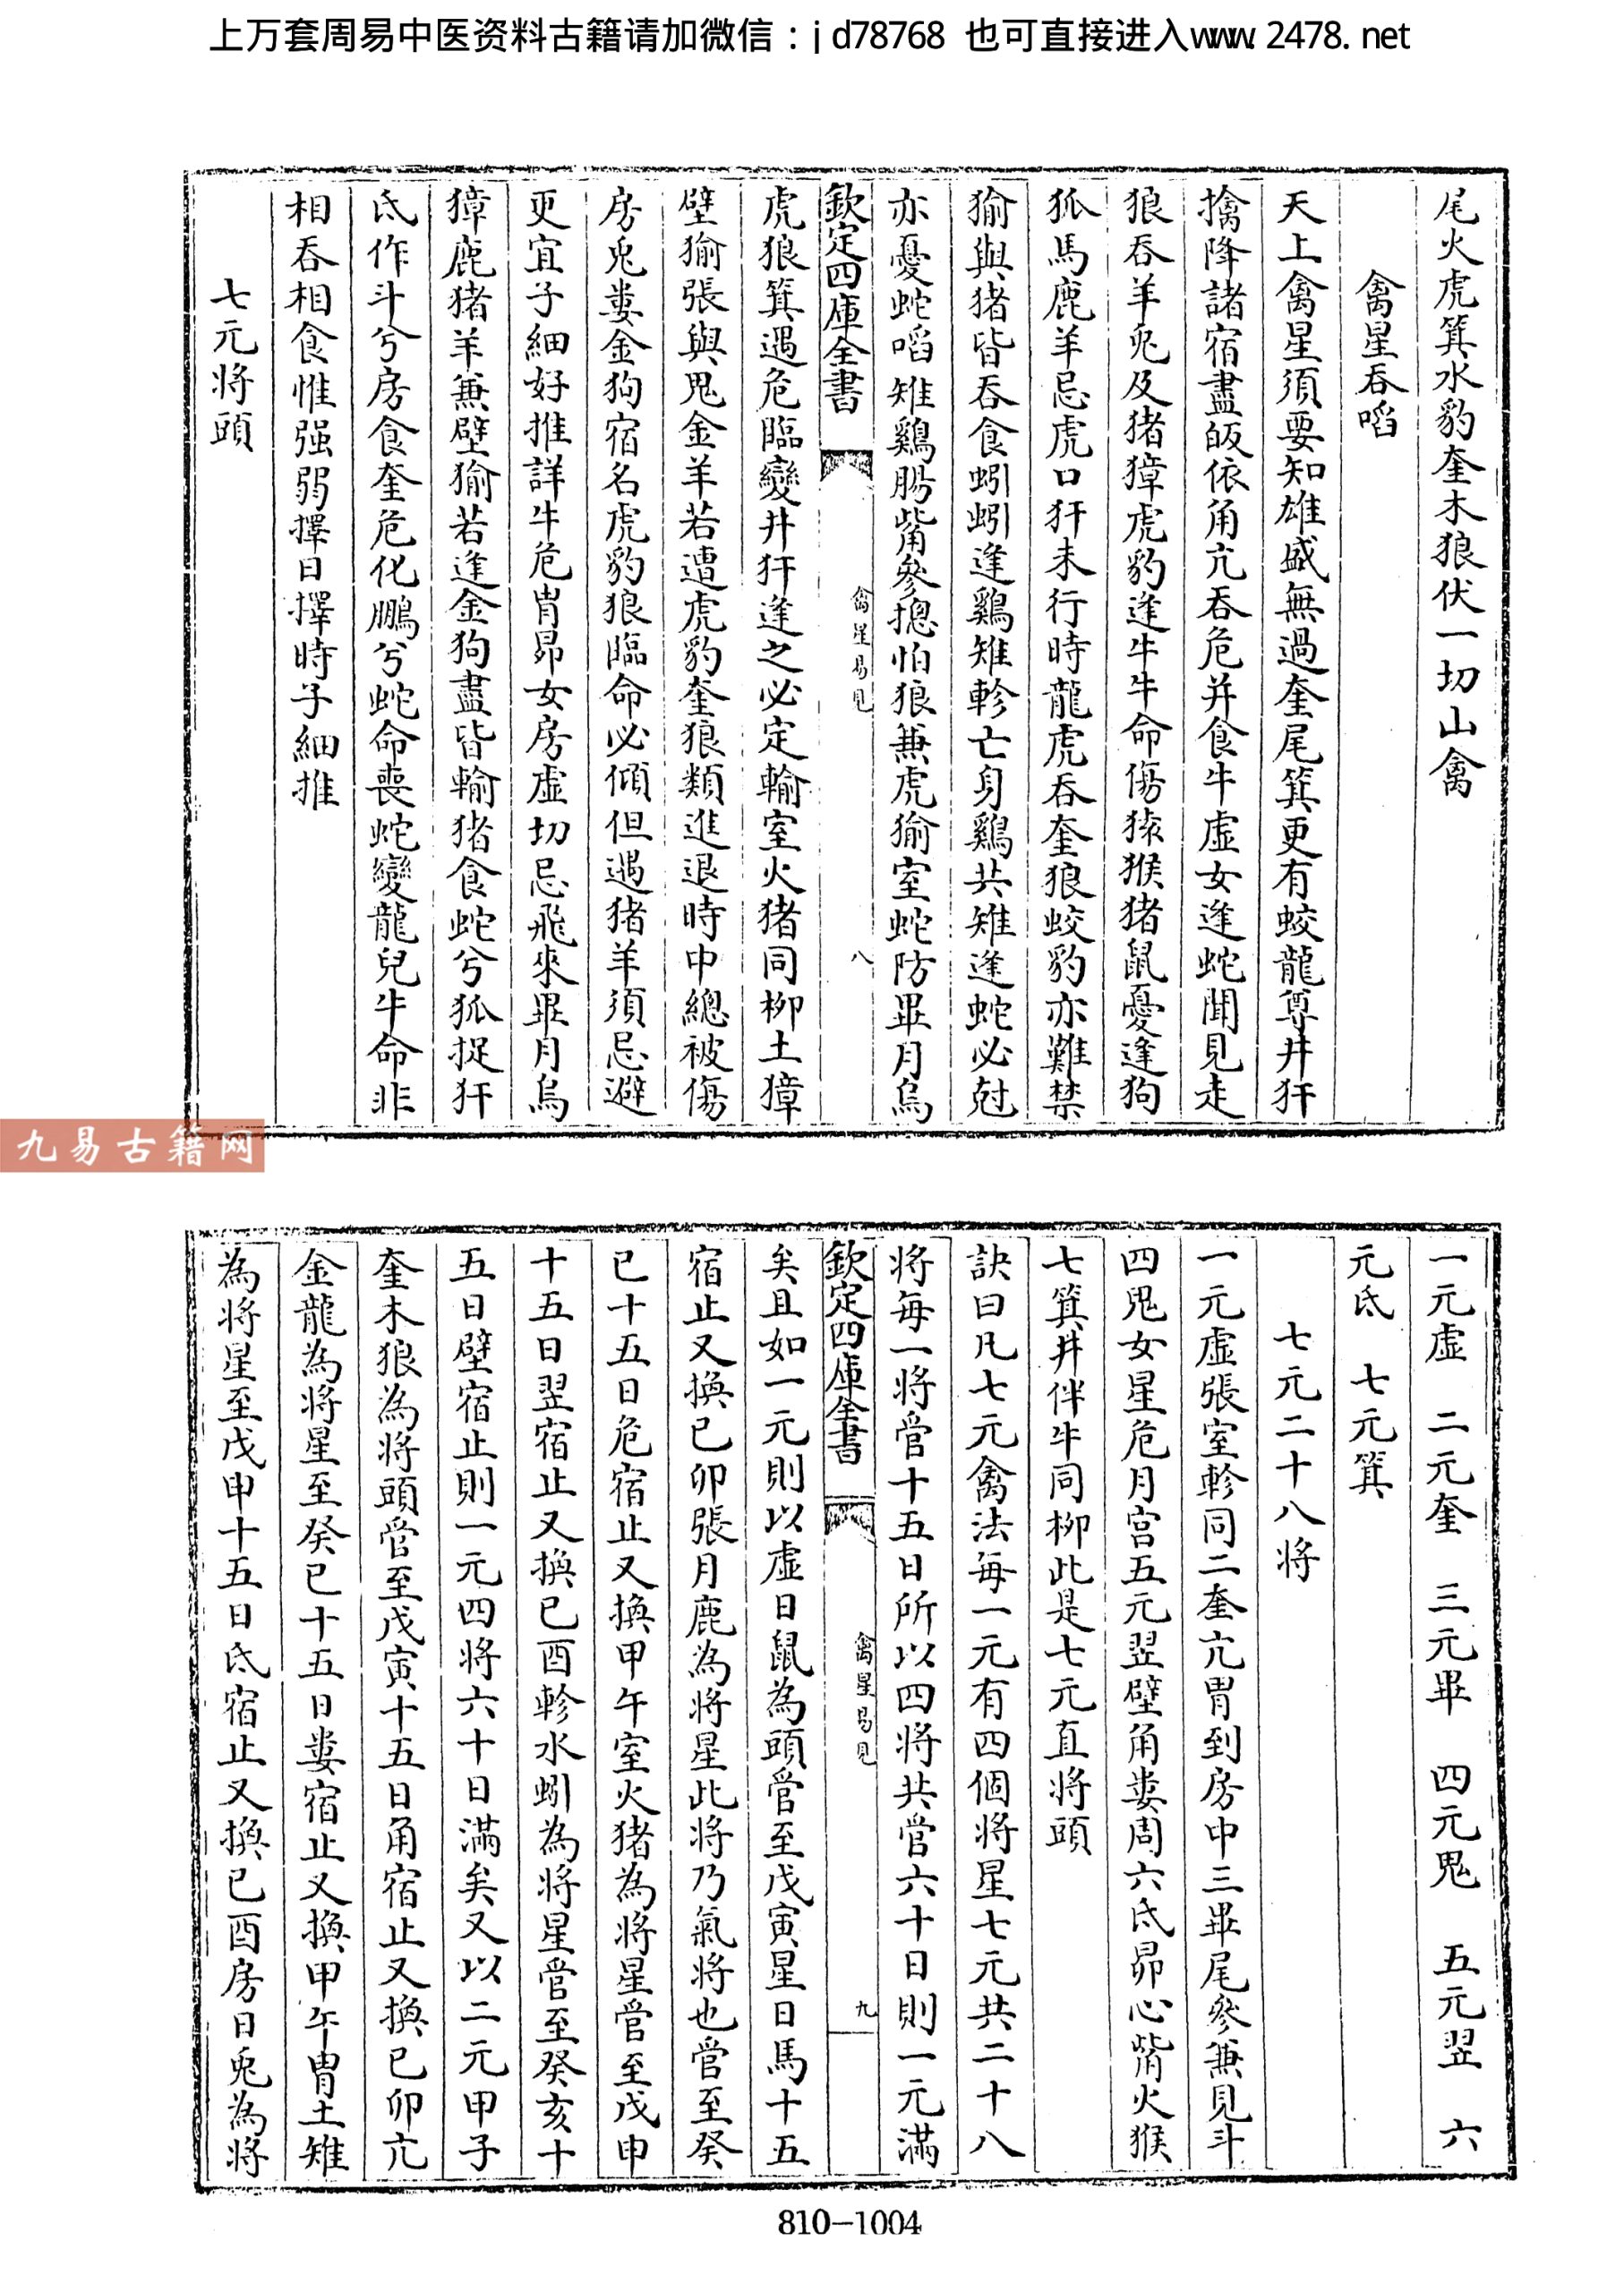 上万套周易中医资料古籍请加微信：jd78768 也可直接进入www.2478.net
尾火虎箕水豹奎木狼伏一切山禽
禽星吞啗
天上禽星須要知雄盛無過奎尾箕更有蛟龍尊井犴
擒降諸宿盡皈依角亢吞危并食牛虛女逢蛇聞見走
狼吞羊兎及猪獐虎豹逢牛牛命傷猿猴猪鼠憂逢狗
狐馬鹿羊忌虎口犴未行時龍虎吞奎狼蛟豹亦難禁
㺄與猪皆吞食蚓蚓逢鷄雉軫亡身鷄共雉逢蛇必尅
亦憂蛇啗雉鷄腸觜參摠怕狼兼虎㺄室蛇防畢月烏
欽定四庫全書
禽星易見
八
虎狼箕遇危臨變井犴逢之必定輸室火猪同柳土獐
壁㺄張與鬼金羊若遭虎豹奎狼類進退時中總被傷
房兎婁金狗宿名虎豹狼臨命必傾但遇猪羊須忌避
更宜子細好推詳牛危肖昴女房虛切忌飛來畢月烏
獐鹿猪羊兼壁㺄若逢金狗盡皆輸猪食蛇兮狐捉犴
氐作斗兮房食奎危化鵬兮蛇命喪蛇變龍兒牛命非
相吞相食惟强弱擇日擇時子細推
七元將頭
九易古籍网
一元虛 二元奎 三元畢 四元鬼 五元翌 六
元氐 七元箕
七元二十八將
一元虛張室軫同二奎亢胃到房中三畢尾參兼見斗
四鬼女星危月宫五元翌壁角婁周六氐昴心觜火猴
七箕井伴牛同柳此是七元直將頭
訣曰凡七元禽法每一元有四個將星七元共二十八
將每一將管十五日所以四將共管六十日則一元滿
欽定四庫全書
禽星易見
九
矣且如一元則以虛日鼠為頭管至戊寅星日馬十五
宿止又換己卯張月鹿為將星此將乃氣將也管至癸
巳十五日危宿止又換甲午室火猪為將星管至戊申
十五日翌宿止又換己酉軫水蚓為將星管至癸亥十
五日壁宿止則一元四將六十日滿矣又以二元甲子
奎木狼為將頭管至戊寅十五日角宿止又換己卯亢
金龍為將星至癸巳十五日婁宿止又換甲午胃土雉
為將星至戊申十五日氐宿止又換己酉房日兎為將
810-1004